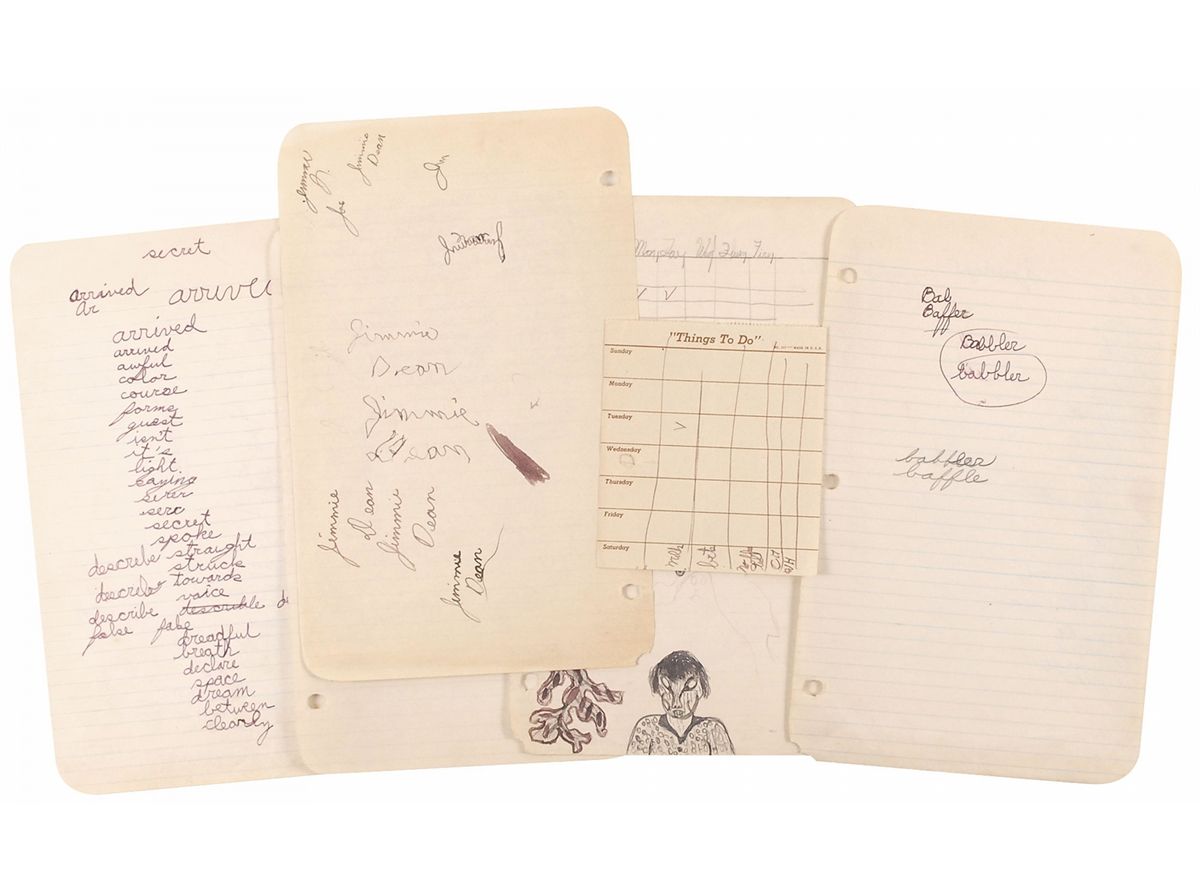 secret
arrived
Ar
arrived
arrived
arrived
awful
color
course
forms
guest
isn't
it's
light
saying
serer
serc
secret
spoke
describe straight
struck
describe towards
voice
describe describle de
false false
dreadful
breath
declare
space
dream
between
clearly
Jimmie
Jr.
Joe
Jimmie
Dean
Jim
Jimmie
Dean
Jimmie
Dean
Jimmie
Dean
Jimmie
Dean
Jimmie
Dean
"Things To Do"
MADE IN U.S.A.
Sunday
Monday
Tuesday
Wednesday
Thursday
Friday
Saturday
milk
Bab
Baffer
Babbler
babbler
babbler
baffle